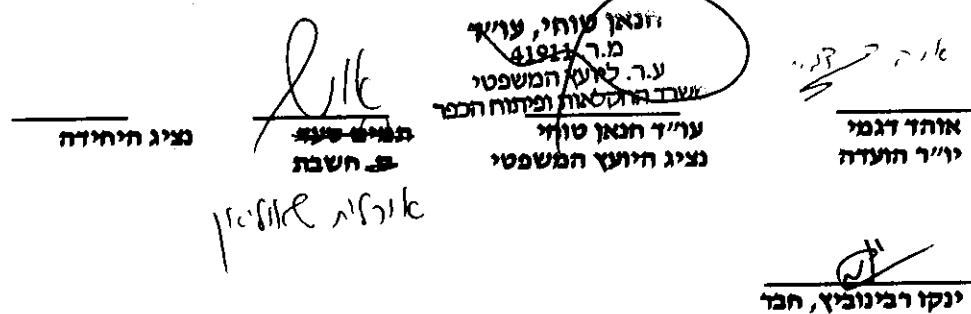 חנאן טוחי, עו״ד
מ.ר. 41911
ע.ר. ליועץ המשפטי
משרד החקלאות ופיתוח הכפר
אוהד דגמי
יו״ר הועדה
עו״ד חנאן טוחי
נציג היועץ המשפטי
תמים סעד
ס. חשבת
נציג היחידה
אורלית
ינקו רבינוביץ, חבר